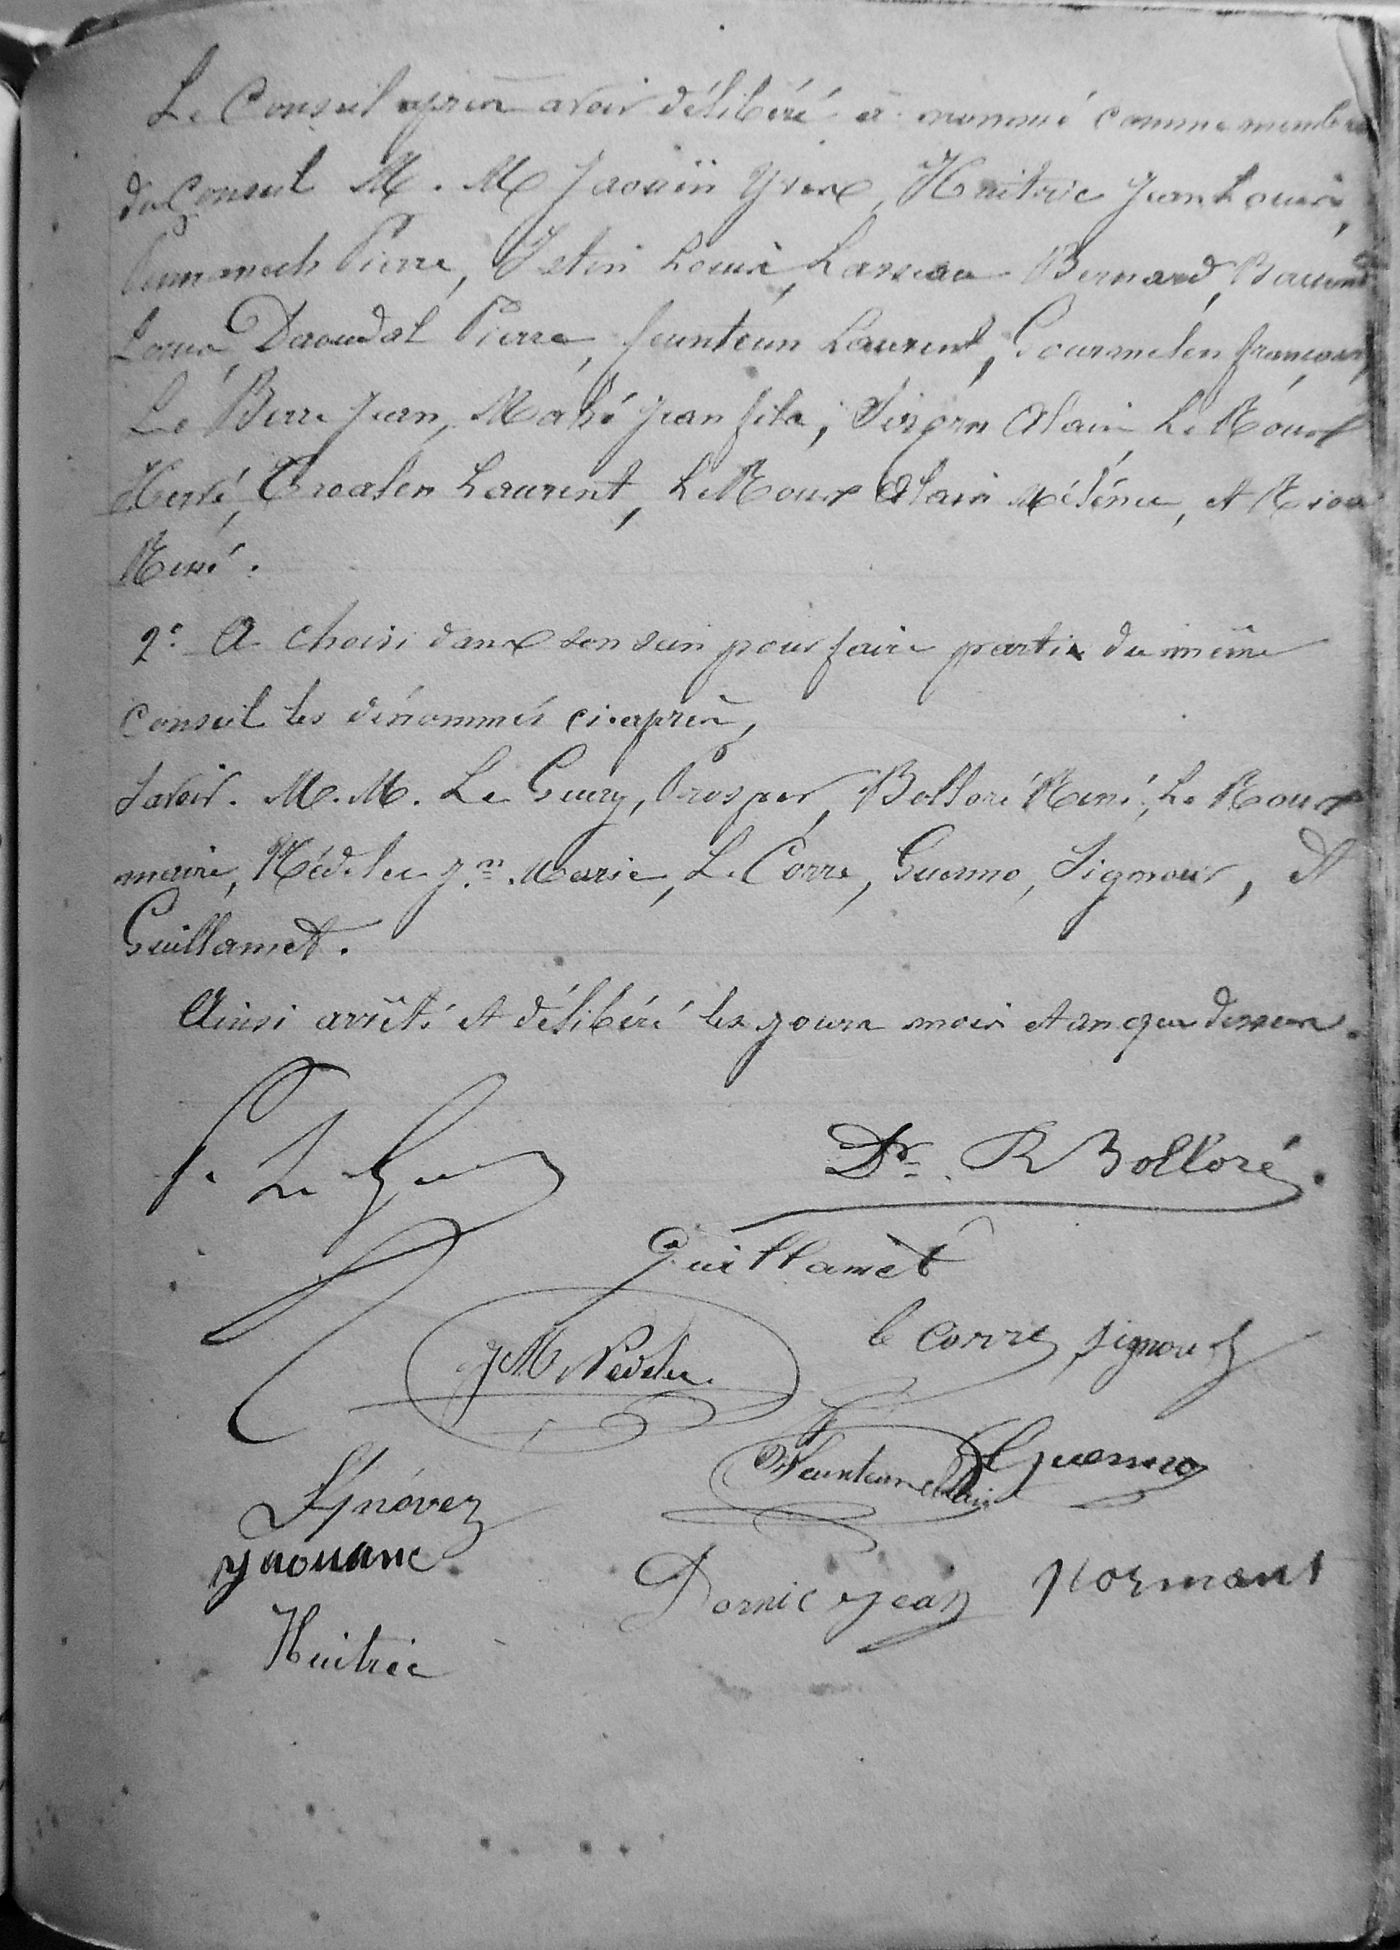 Le Conseil après avoir délibéré a nommé comme membres
du Conseil M. M Jaouïn Yves, Huitric Jean Louis,
Pierre, Istin Louis, Lasseau Bernard,
Louis, Daoudal Pierre, feunteun Laurent, Gourmelen françois,
Le Berre Jean, Mahé Jean fils, Alain Le Roux
Hervé, Croalen Laurent, Le Roux Alain Mélénec, et Riou
René.
2º A choisi dans son sein pour faire partie du même
Conseil les dénommés ci après,
Savoir. M. M. Le Guay, Prosper, Bolloré René, Le Roux
maire, Nédelec Jn. Marie, Le Corre, Guermo, Signour, et
Guillamet.
Ainsi arrêté et délibéré les jours mois et an que dessus.
P. Le Gu
Dr. R Bolloré.
Guillamet
le corre signour
J M Nédelec
Feunteun Alain Guermo
Yaouanc
Dornic jean Normant
Huitric